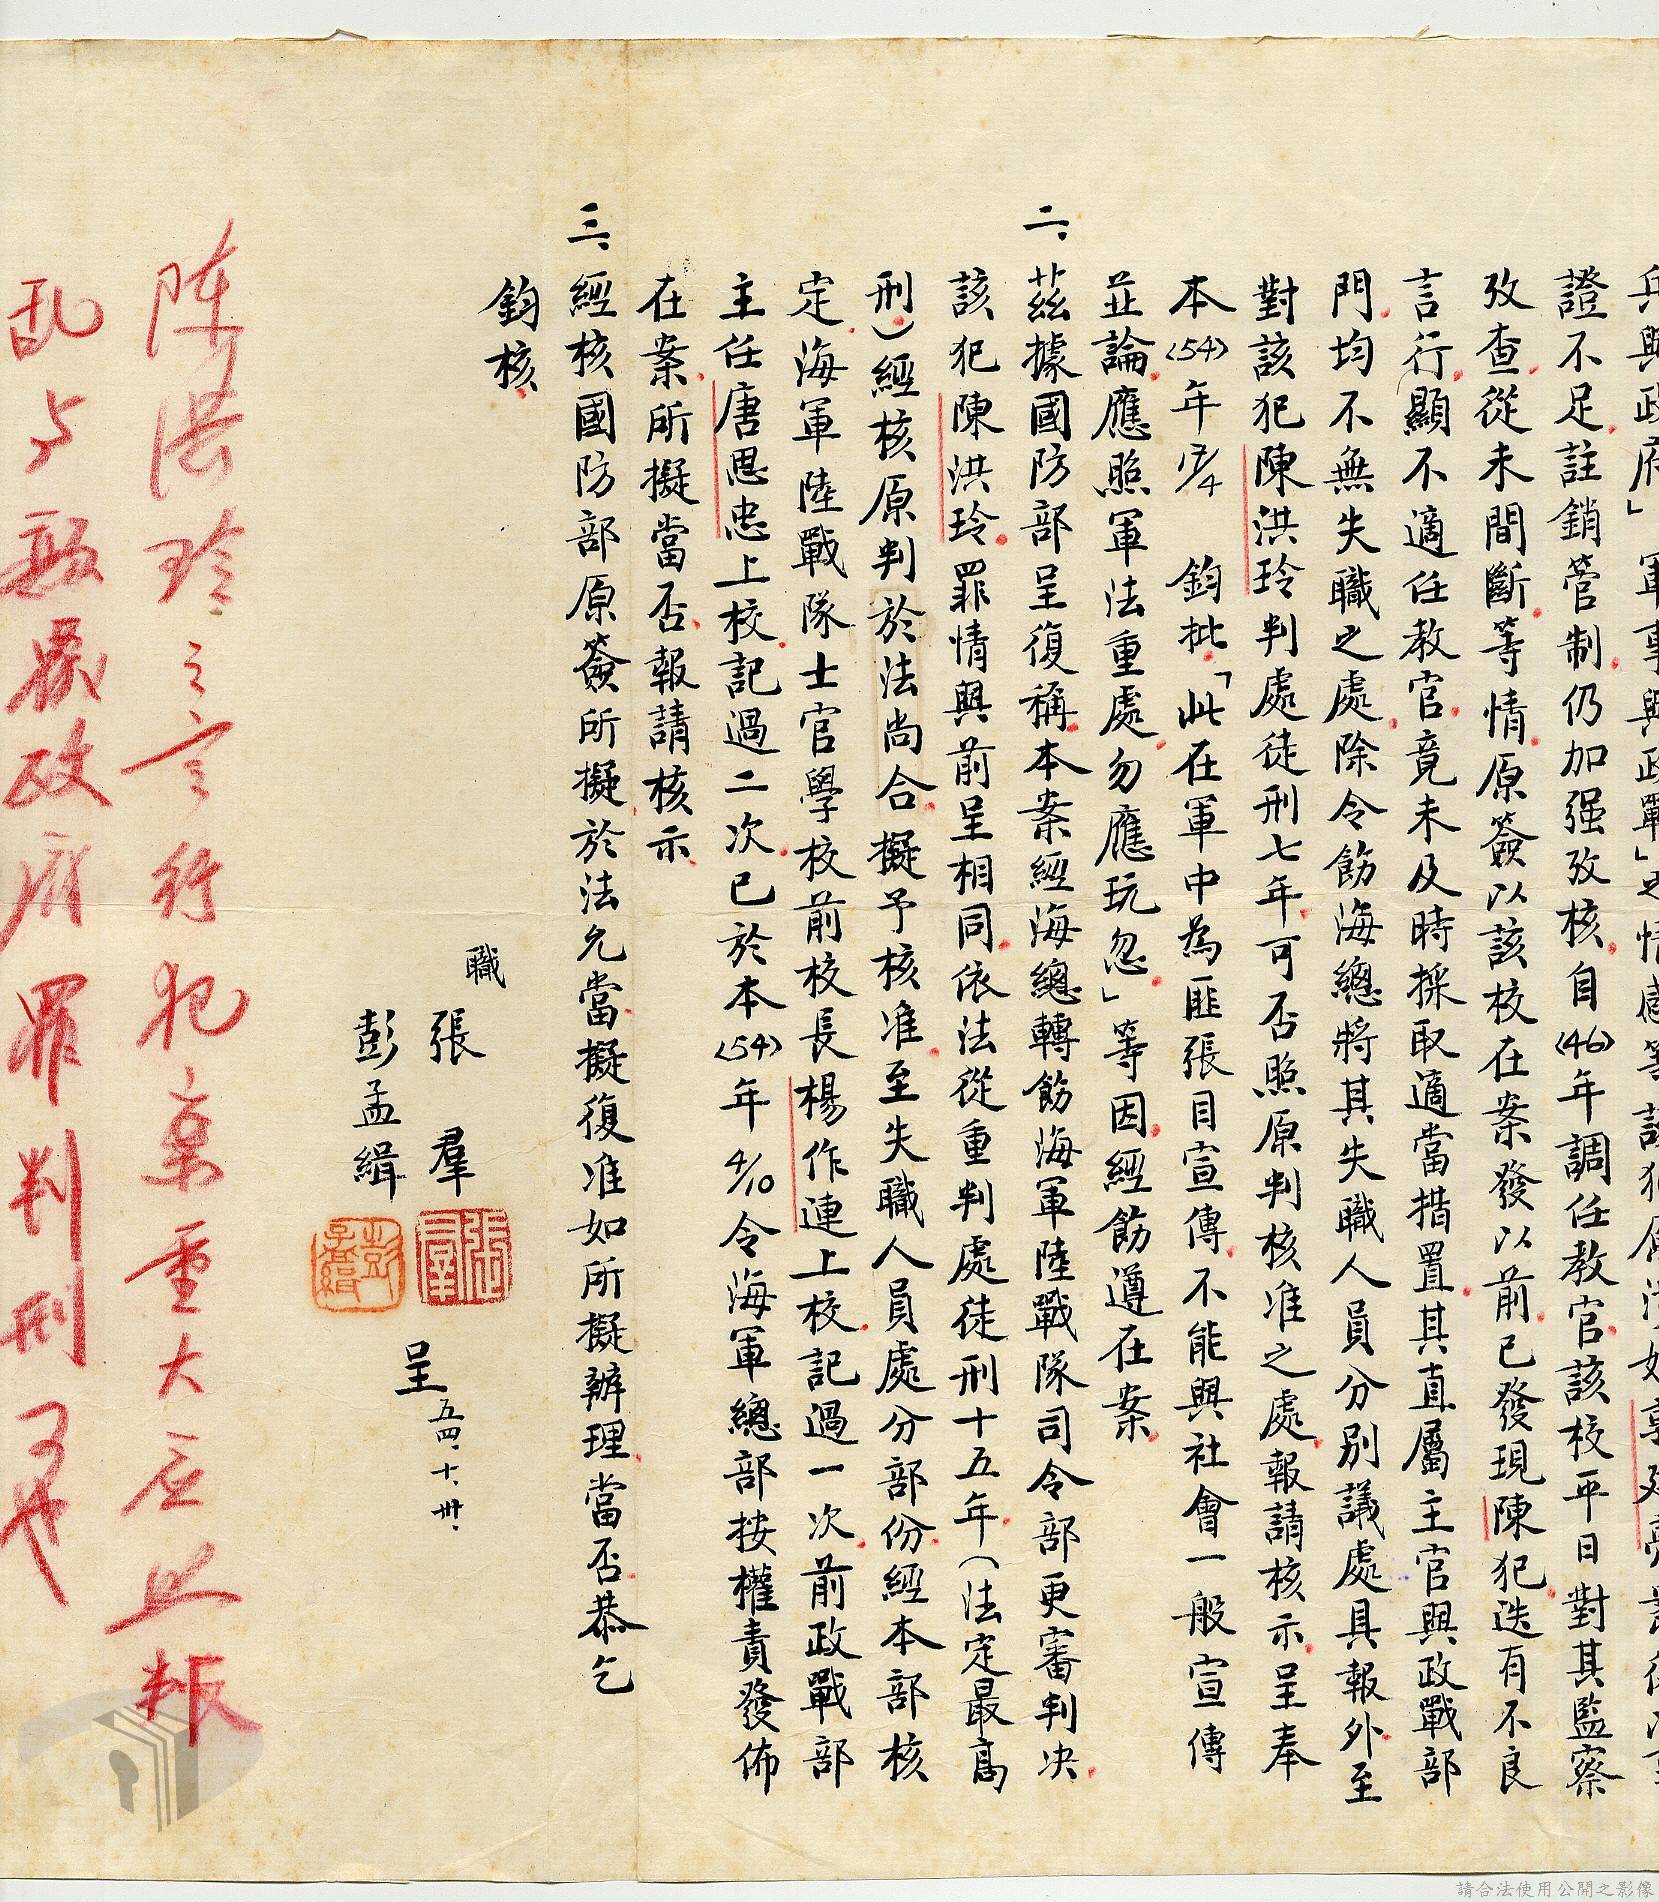 兵與政府」軍事與政戰」之情感等該犯
證不足註銷管制仍加强攷核自(46)年調任教官該校平日對其監察
攷查從未間斷等情原簽以該校在案發以前已發現陳犯迭有不良
言行顯不適任教官竟未及時採取適當措置其直屬主官與政戰部
門均不無失職之處除令飭海總將其失職人員分別議處具報外至
對該犯陳洪玲判處徒刑七年可否照原判核准之處報請核示呈奉
本(54)年 鈞批「此在軍中為匪張目宣傳不能與社會一般宣傳
並論應照軍法重處勿應玩忽」等因經飭遵在案
二、茲據國防部呈復稱本案經海總轉飭海軍陸戰隊司令部更審判決
該犯陳洪玲罪情與前呈相同依法從重判處徒刑十五年(法定最高
刑)經核原判於法尚合擬予核准至失職人員處分部份經本部核
定海軍陸戰隊士官學校前校長楊作連上校記過一次前政戰部
主任唐思忠上校記過二次已於本(54)年4/10令海軍總部按權責發佈
在案所擬當否報請核示
三、經核國防部原簽所擬於法允當擬復准如所擬辦理當否恭乞
鈞核
職 張羣
彭孟緝
呈 五四、十、卅、
張羣
彭孟緝
陈洪玲之言行犯案重大应以叛
乱与颠覆政府罪判刑
請合法使用公開之影像